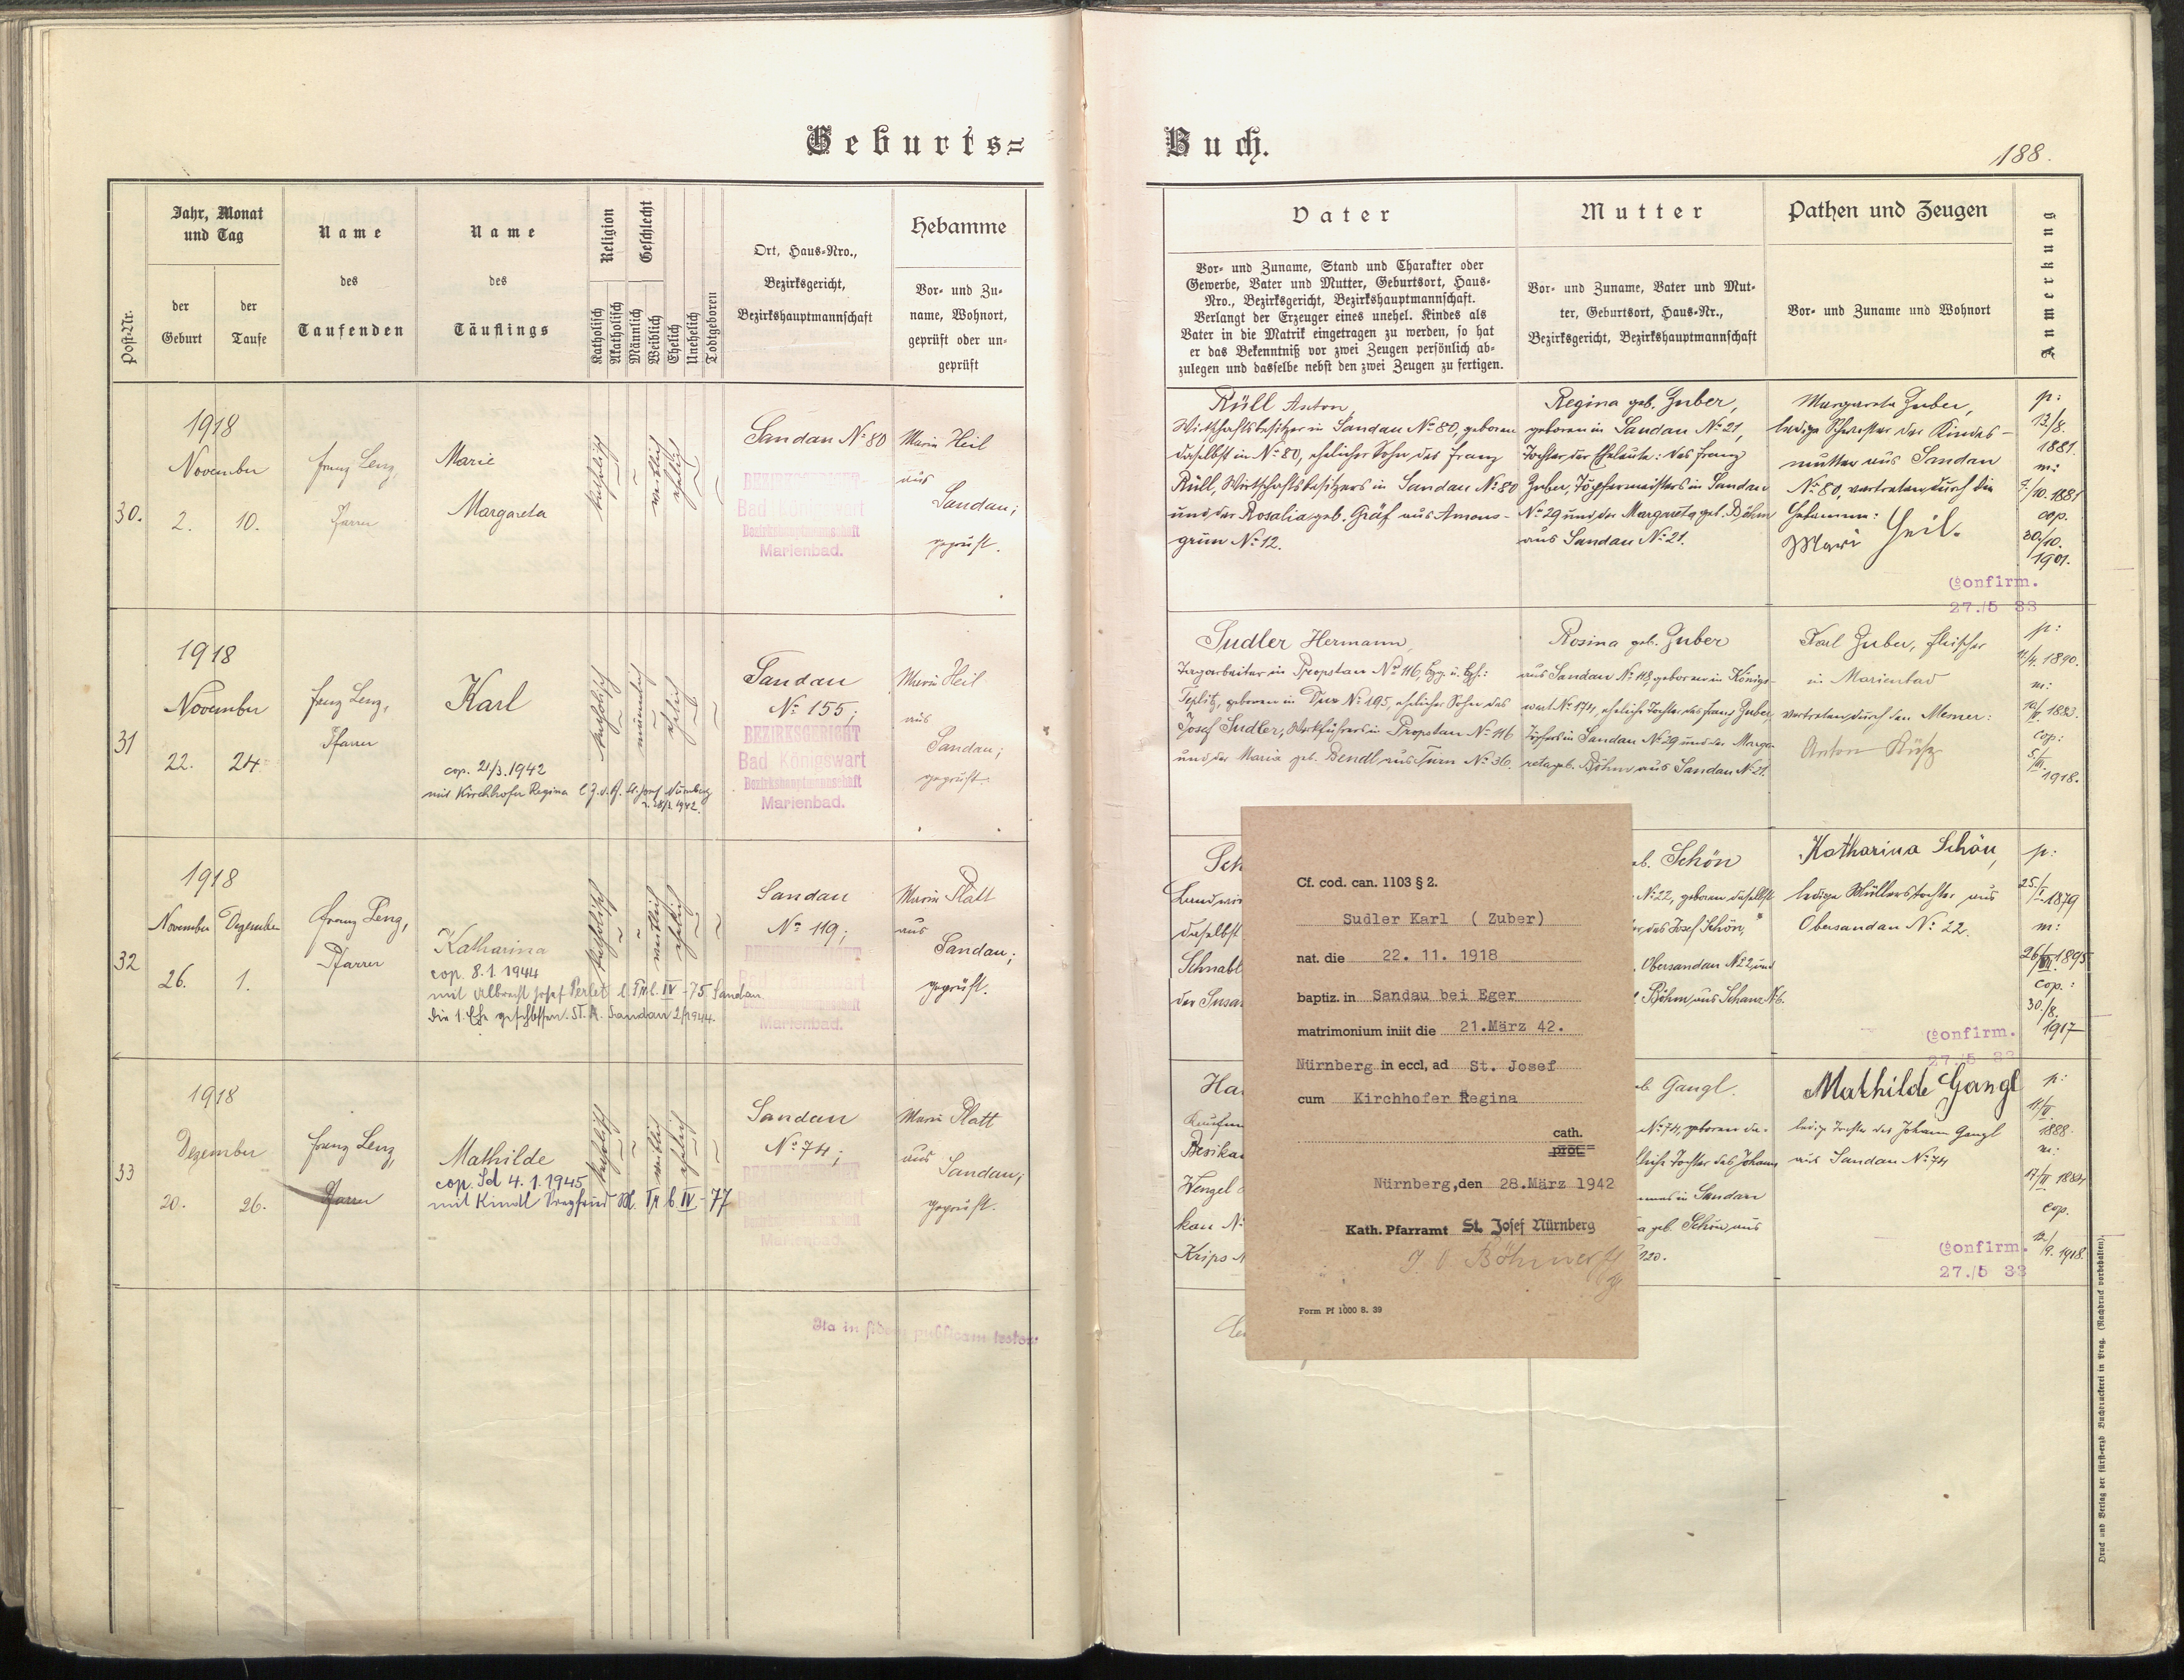 Geburts=
Buch.
188.
Post-Nr.
Jahr, Monat
und Tag
der
Geburt
der
Taufe
Name
des
Taufenden
Name
des
Täuflings
Religion
Geschlecht
Katholisch
Akatholisch
Männlich
Weiblich
Ehelich
Unehelich
Todtgeboren
Ort, Haus-Nro.,
Bezirksgericht,
Bezirkshauptmannschaft
Hebamme
Vor- und Zu-
name, Wohnort,
geprüft oder un-
geprüft
Vater
Vor- und Zuname, Stand und Charakter oder
Gewerbe, Vater und Mutter, Geburtsort, Haus-
Nro., Bezirksgericht, Bezirkshauptmannschaft.
Verlangt der Erzeuger eines unehel. Kindes als
Vater in die Matrik eingetragen zu werden, so hat
er das Bekenntniß vor zwei Zeugen persönlich ab-
zulegen und dasselbe nebst den zwei Zeugen zu fertigen.
Mutter
Vor- und Zuname, Vater und Mut-
ter, Geburtsort, Haus-Nr.,
Bezirksgericht, Bezirkshauptmannschaft
Pathen und Zeugen
Vor- und Zuname und Wohnort
Anmerkung
30.
1918
November
2. 10.
Franz Lenz,
Pfarrer
Marie
Margareta
katholisch
weiblich
ehelich
Sandau No 80
BEZIRKSGERICHT
Bad Königswart
Bezirkshauptmannschaft
Marienbad.
Marie Heil
aus
Sandau;
geprüft.
Rüll Anton,
Wirtschaftsbesitzer in Sandau No 80, geboren
daselbst in No 80, ehelicher Sohn des Franz
Rüll, Wirtschaftsbesitzers in Sandau No 80
und der Rosalia geb. Gräf aus Amons-
grün No 12.
Regina geb. Zuber,
geboren in Sandau No 21,
Tochter der Eheleute: des Franz
Zuber, Töpfermeisters in Sandau
No 29 und der Margareta geb. Böhm
aus Sandau No 21.
Margareta Zuber,
ledige Schwester der Kindes-
mutter aus Sandau
No 80, vertreten durch die
Hebamme:
Marie Heil.
p:
13/8.
1881.
m:
/10. 1881
cop.
30/10.
1901.
Confirm.
27./5 33
31
1918
November
22. 24.
Franz Lenz,
Pfarrer
Karl
cop. 21/3.1942
mit Kirchhofer Regina
katholisch
männlich
ehelich
Sandau
No 155;
BEZIRKSGERICHT
Bad Königswart
Bezirkshauptmannschaft
Marienbad.
Marie Heil
aus
Sandau;
geprüft.
Sudler Hermann,
Tagarbeiter in Propstau No 116,
Teplitz, geboren in Dux No 195, ehelicher Sohn des
Josef Sudler, Werkführers in Propstau No 116
und der Maria geb. Bendl aus Turn No 36.
Rosina geb. Zuber
aus Sandau No 118, geboren in Königs-
wart No 174, eheliche Tochter des Franz Zuber,
Töpfers in Sandau No 29 und der Marga-
reta geb. Böhm aus Sandau No 21.
Karl Zuber, Fleischer
in Marienbad
vertreten durch den Mesner:
Anton
p:
1890.
m:
1883.
cop:
1918.
32
1918
November Dezember
26. 1.
Franz Lenz,
Pfarrer
Katharina
cop. 8.1.1944
mit Albrecht Josef Perlet
die 1. Ehe geschlossen. St. A. Sandau 2/1944.
katholisch
weiblich
ehelich
Sandau
No 119;
BEZIRKSGERICHT
Bad Königswart
Bezirkshauptmannschaft
Marienbad.
Marie Platt
aus
Sandau;
geprüft.
Sch
Landwir
daselbst
Schnabl
der Susa
eb. Schön
No 22, geboren daselbst
des Josef Schön,
Obersandau No 22 und
Böhm aus Schanz No 6.
Katharina Schön,
ledige Müllerstochter aus
Obersandau No 22.
p:
25./
1879
m:
1895
cop.:
30./8.
1917
Confirm.
27./5 33
33
1918
Dezember
20. 26.
Franz Lenz,
Pfarrer
Mathilde
cop. Sd 4.1.1945
mit Kindl
katholisch
weiblich
ehelich
Sandau
No 74;
BEZIRKSGERICHT
Bad Königswart
Bezirkshauptmannschaft
Marienbad.
Marie Platt
aus
Sandau;
geprüft.
Ha
Kaufm
Wenzel
kau No
Krips
eb. Gangl.
No 74, geboren da-
eliche Tochter des Johann
in Sandau
geb. Schön aus
Mathilde Gangl
ledige Tochter des Johann Gangl
aus Sandau No 74
p:
1888.
m:
cop.
/9. 1918.
Confirm.
27./5 33
Ita in fidem publicam testor:
Cf. cod. can. 1103 § 2.
Sudler Karl ( Zuber)
nat. die 22. 11. 1918
baptiz. in Sandau bei Eger
matrimonium iniit die 21.März 42.
Nürnberg in eccl. ad St. Josef
cum Kirchhofer Regina
cath.
prot.
Nürnberg,den 28.März 1942
Kath. Pfarramt St. Josef Nürnberg
Form Pf 1000 8. 39
Druck und Verlag der fürst-erzb Buchdruckerei in Prag. (Nachdruck vorbehalten).